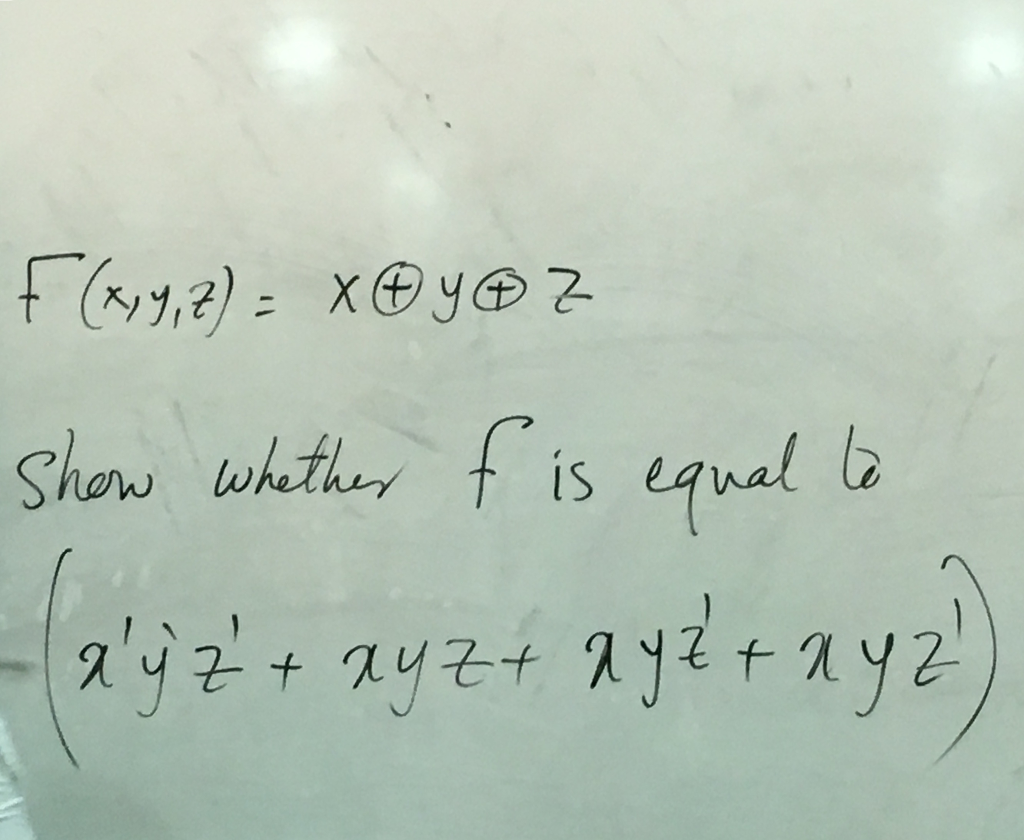 F(x,y,z) = x⊕y⊕z
Show whether f is equal to
(x'y'z' + xyz + xyz' + xyz')